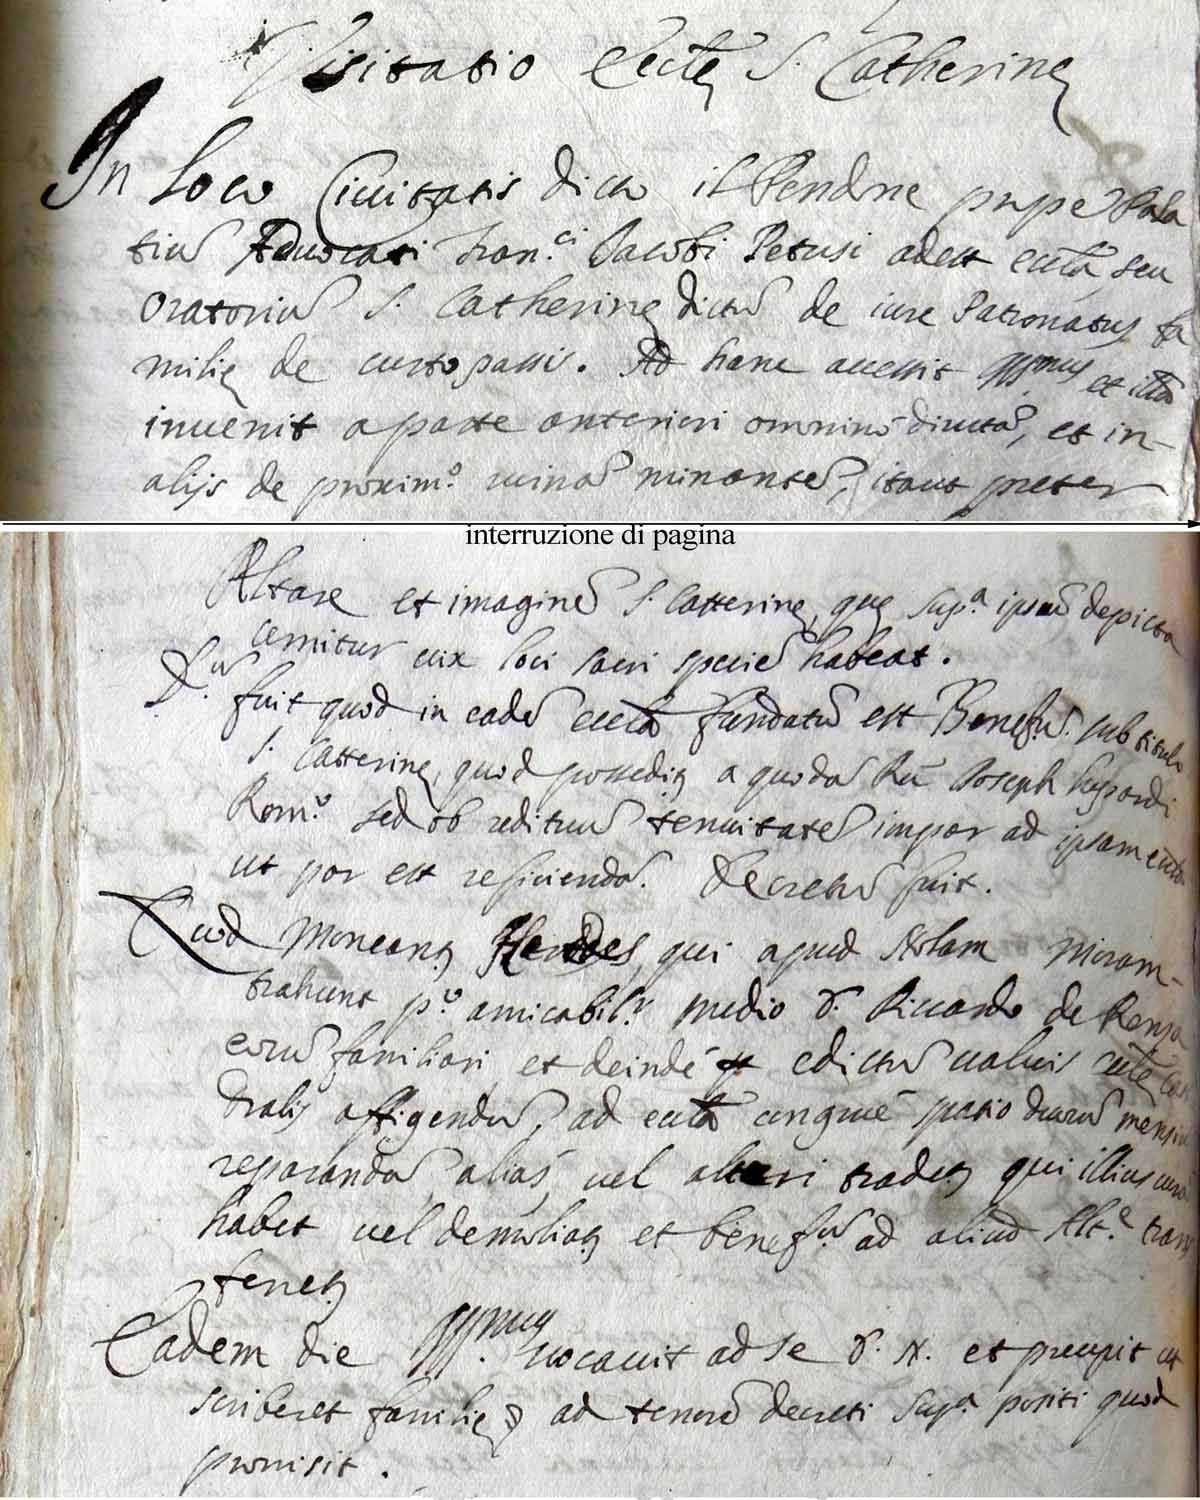 Visitatio Eccłę S. Catherinę
In loco Civitatis dicto il Pendine prope Pala
tiū Advocati Fran.ci Jacobi Petusi adest eccła seu
Oratoriū S. Catherinę dictū de iure Patronatus fa
milię de custopassis. Ad hanc accessit et illā
invenit a parte anteriori omninò dirutā, et in-
alijs de proxim.º ruinā minantē, itaut preter
interruzione di pagina
Altare et imaginē S. Catterinę, quę sup.ª ipsū depicta
cernitur vix loci sacri speciē habeat.
D.ū fuit quod in eadē ecclā fundatū est Benef.ū sub titulo
S. Catterinę, quod possedit a quodā Joseph
Rom.º sed ob redituū tenuitatē impar ad ipsam ecclā
ut par est reficiendā. Decretū fuit.
Quod moneant Heredes, qui apud Nolam moram-
trahunt p.º amicabil.r medio D. Riccardo de Renza
eorū familiari et deindè edictū valvis eccłę Cate
dralis affigendū, ad ecclā congruè spatio duorū mensiū
reparandā, aliàs, vel alteri tradet qui illius curā
habet vel demoliat et benef.ū ad aliud Alt.e trans
feret
Eadem die vocavit ad se D. N. et precepit ut
scriberet familię ad tenorē decreti sup.ª positi quod
promisit.